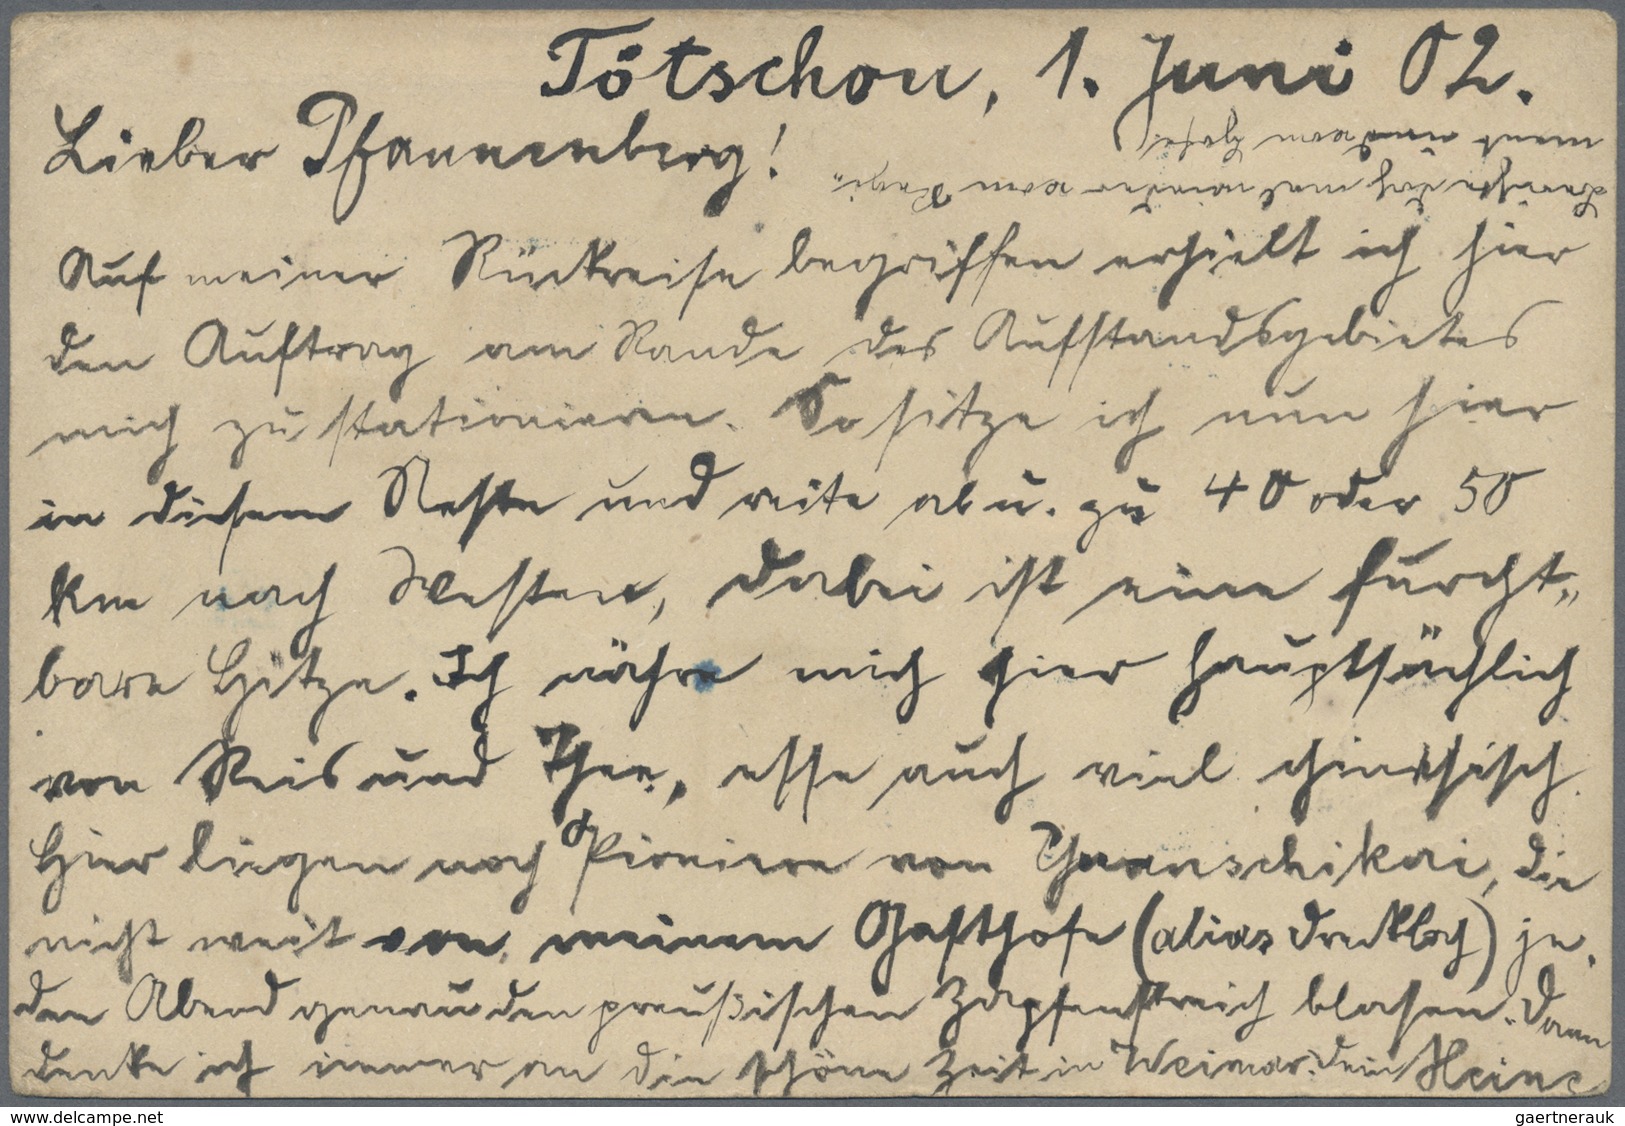 Tötschou, 1. Juni 02.
Lieber Pfannenberg!
Auf meiner Rückreise begriffen erhielt ich hier
den Auftrag am Rande des Aufstandsgebietes
mich zu stationieren. So sitze ich nun hier
in diesem Neste und reite ab u. zu 40 oder 50
km nach Westen, dabei ist eine furcht„
bare Hitze. Ich nähre mich hier hauptsächlich
von Reis und Thee, esse auch viel chinesisch.
Hier liegen noch Pioniere von Yuanschikai, die
nicht weit von meinem Gasthofe (alias Dreckloch) je„
den Abend genau den preußischen Zapfenstreich blasen. Dann
denke ich immer an die schöne Zeit in Weimar. Dein Heine
Berichte doch mal wieder vom Regi„
ment und vom Hofe.
delcampe.net
gaertnerauk